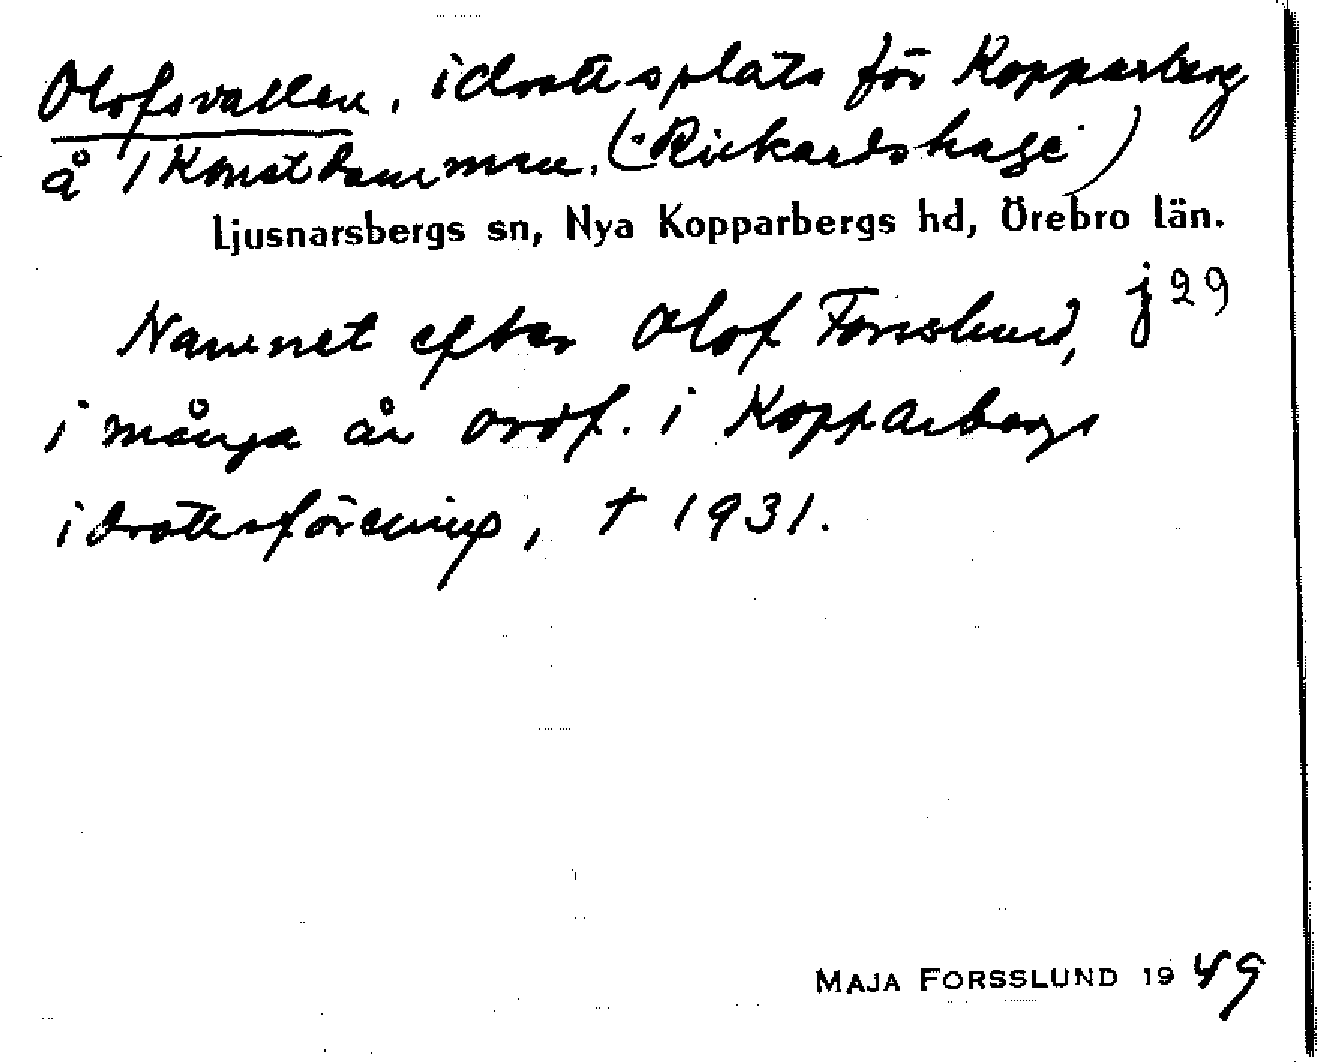 Olofsvallen, idrottsplats för Kopparberg
å Konstdammen. (: Rickardshage )
Ljusnarsbergs sn, Nya Kopparbergs hd, Örebro län.
j 29
Namnet efter Olof Forsslund,
i många år ordf. i Kopparbergs
idrottsförening, † 1931.
MAJA FORSSLUND 1949